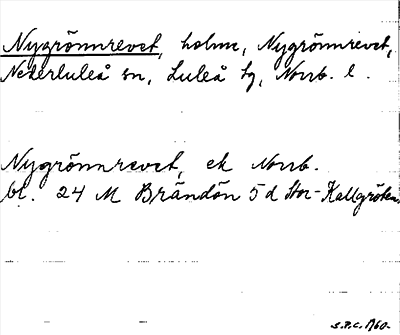 Nygrönnrevet, holme, Nygrönnrevet,
Nederluleå sn, Luleå tg, Norrb. l.
Nygrönnrevet, ek Norrb.
bl. 24 M Brändön 5 d Stor-Kallgrötan.
S.P.C. 1960.